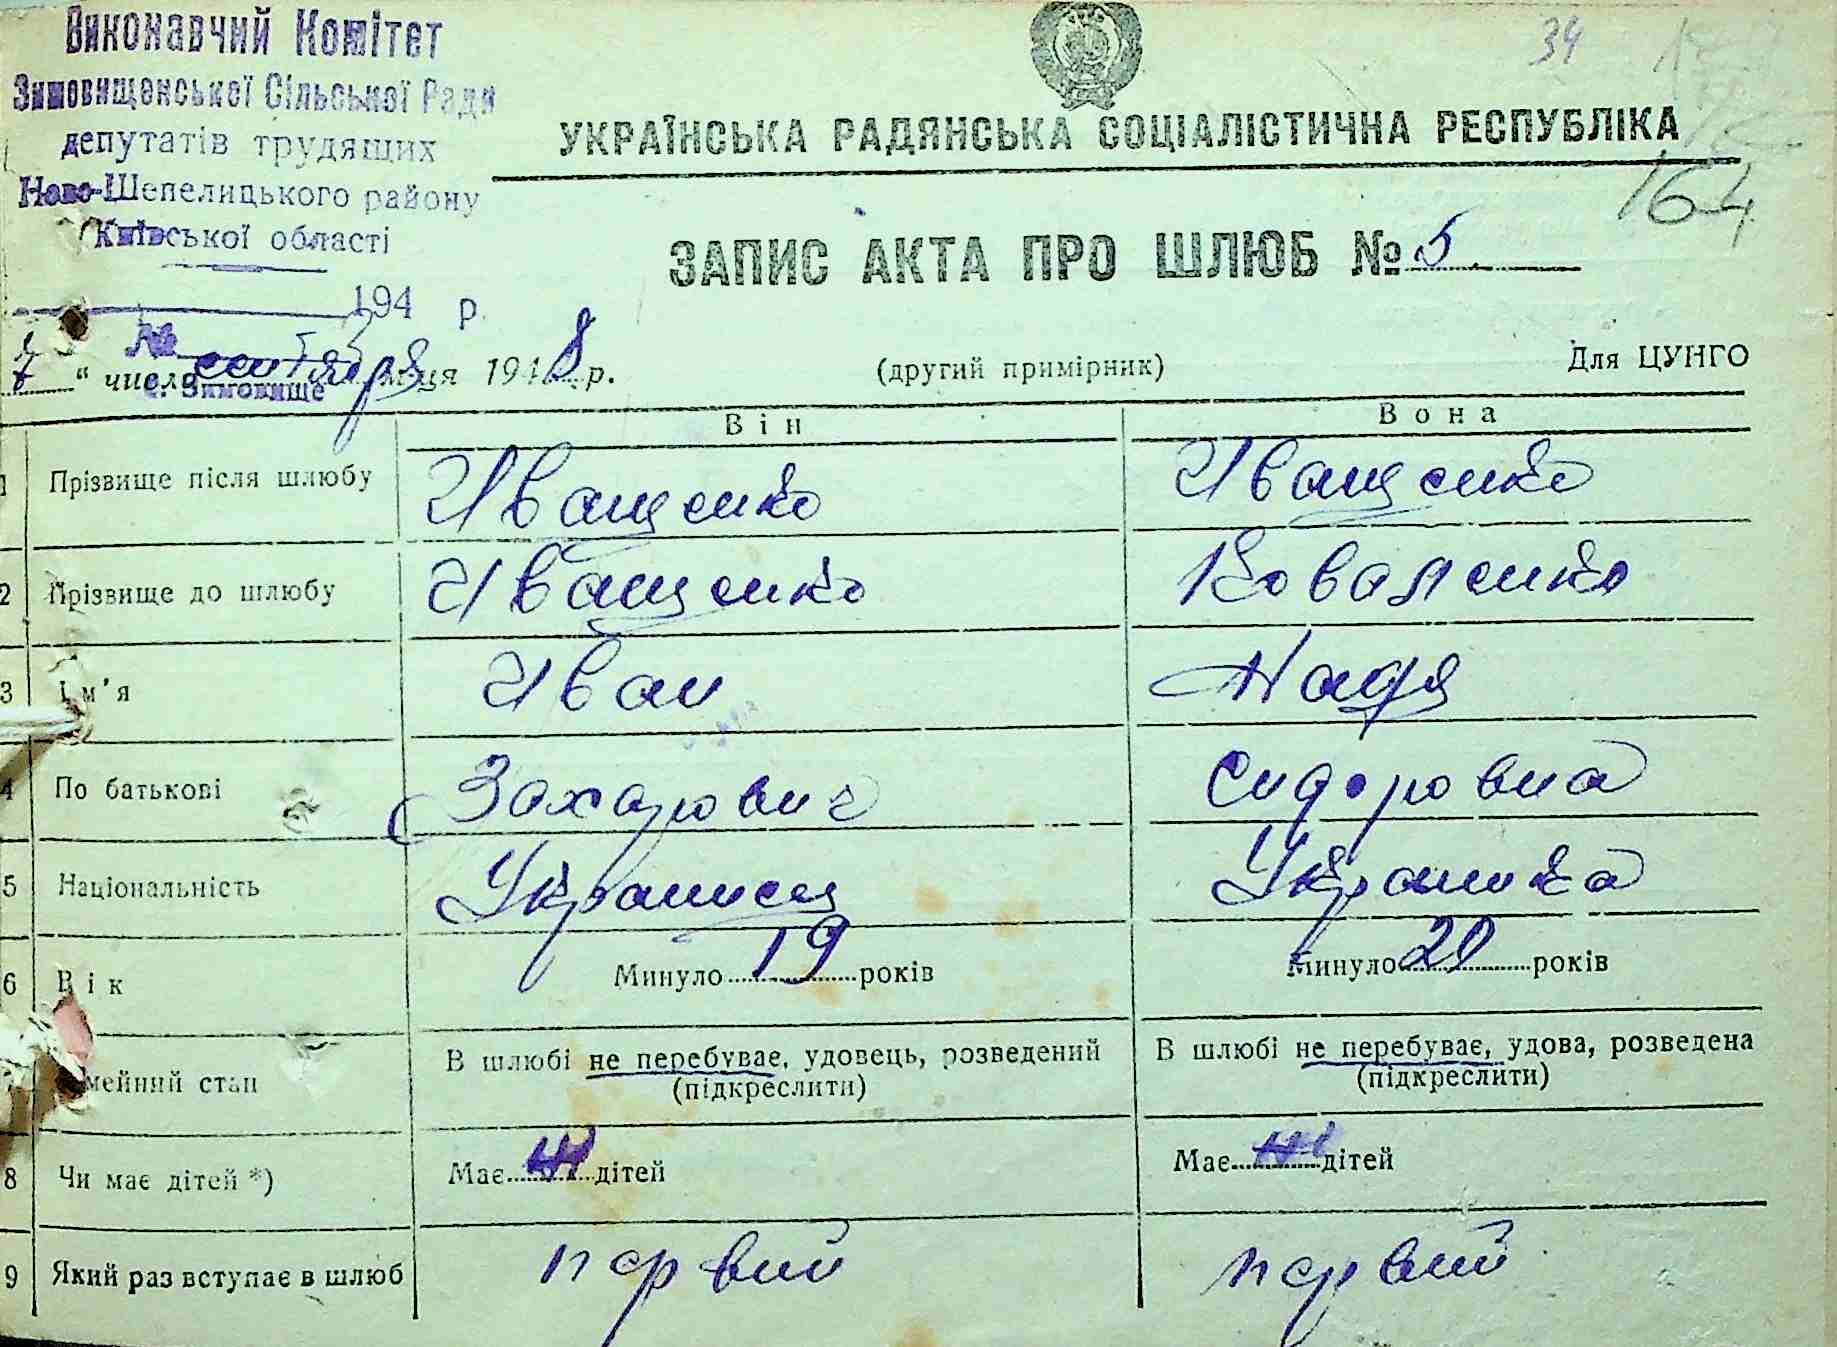 Виконавчий Комітет
Зимовищенської Сільської Ради
депутатів трудящих
Ново-Шепелицького району
Київської області
34
УКРАЇНСЬКА РАДЯНСЬКА СОЦІАЛІСТИЧНА РЕСПУБЛІКА
164
ЗАПИС АКТА ПРО ШЛЮБ № 5
194 р.
№
7 " числа сентября м-ця 1948 р.
(другий примірник)
Для ЦУНГО
с. Зимовище
Він
Вона
1 Прізвище після шлюбу Иващенко Иващенко
2 Прізвище до шлюбу Иващенко Коваленко
3 Ім'я Иван Надя
4 По батькові Захарович Сидоровна
5 Національність Украинец Украинка
6 Вік Минуло 19 років Минуло 20 років
мейний стан В шлюбі не перебуває, удовець, розведений В шлюбі не перебуває, удова, розведена
(підкреслити) (підкреслити)
8 Чи має дітей *) Має дітей Має дітей
9 Який раз вступає в шлюб первий первий